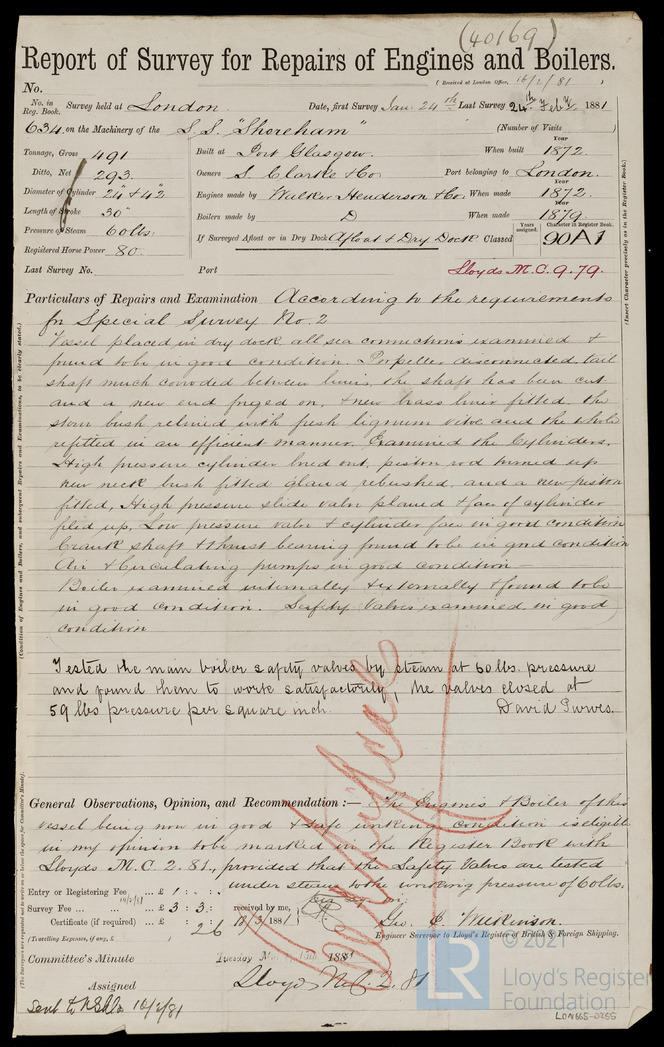 (40169)
Report of Survey for Repairs of Engines and Boilers.
(Received at London Office, 16/2/81)
No.
No. in Reg. Book. Survey held at London. Date, first Survey Jan. 24th Last Survey 24th Feby 1881
634 on the Machinery of the S.S. "Shoreham" (Number of Visits
Tonnage, Gross 491 Built at Port Glasgow. When built Year 1872.
Ditto, Net 293. Owners S. Clarke & Co Port belonging to London.
Diameter of Cylinder 24" & 42" Engines made by Walker Henderson & Co. When made Year 1872.
Length of Stroke 30" Boilers made by D When made Year 1879.
Pressure of Steam 60 lbs. If Surveyed Afloat or in Dry Dock Afloat & Dry Dock Classed Years assigned. Character in Register Book. 90A1
Registered Horse Power 80.
Last Survey No. Port Lloyds M.C. 9.79.
(Insert Character precisely as in the Register Book.)
Particulars of Repairs and Examination According to the requirements
for Special Survey No. 2
Vessel placed in dry dock all sea connections examined &
found to be in good condition. Propeller disconnected tail
shaft much corroded between liners, the shaft has been cut
and a new end forged on, & new brass liner fitted the
stern bush relined with fresh lignum vitae and the whole
refitted in an efficient manner. Examined the Cylinders.
High pressure cylinder bored out, piston rod turned up
new neck bush fitted gland rebushed, and a new piston
fitted, High pressure slide valve planed & face of cylinder
filed up, Low pressure valve & cylinder face in good condition
Crank shaft & thrust bearing found to be in good condition
Air & Circulating pumps in good condition—
Boiler examined internally & externally & found to be
in good condition. Safety Valves examined in good
condition
(Condition of Engines and Boilers, and subsequent Repairs and Examinations, to be clearly stated.)
Tested the main boiler safety valves by steam at 60 lbs. pressure
and found them to work satisfactorily, the valves closed at
59 lbs pressure per square inch. David Purves.
General Observations, Opinion, and Recommendation:— The Engines & Boiler of this
vessel being now in good & safe working condition is eligible
in my opinion to be marked in the Register Book with
Lloyds M.C. 2.81., provided that the Safety Valves are tested
under steam to the working pressure of 60 lbs.
Entry or Registering Fee ... £ 1 : . : .
16/2/81
Survey Fee ... ... £ 3 : 3 : received by me,
Certificate (if required) ... £ : 2 6 10/3/1881
(Travelling Expenses, if any, £ )
Geo. E. Wilkinson.
Engineer Surveyor to Lloyd's Register of British & Foreign Shipping.
Committee's Minute Tuesday 1881
Assigned Lloyds M.C. 2.81
(The Surveyors are requested not to write on or below the space for Committee's Minute).
16/2/81
© 2021
LR
Lloyd's Register
Foundation
LON665-0255